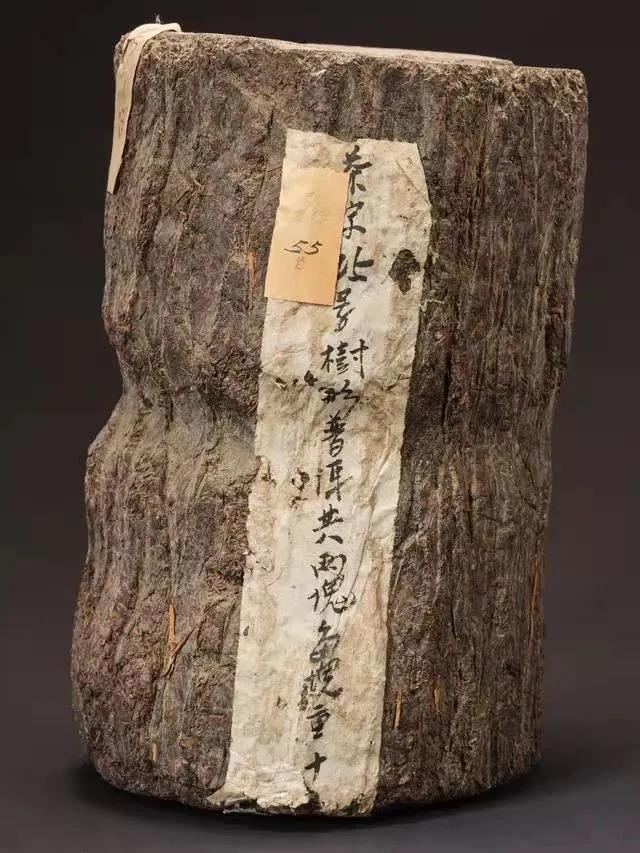 茶字号樹形普洱共両塊每塊重十
55